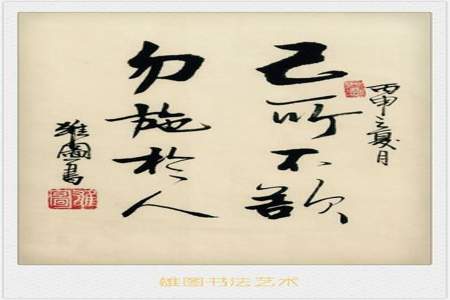 丙申之夏月
己所不欲
勿施於人
雄圖書
雄图书法艺术